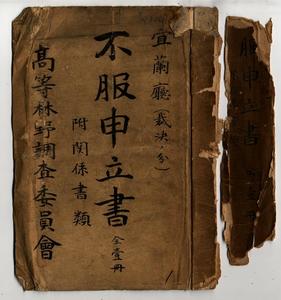 宜蘭廳裁決ノ分)
不服申立書
全壹冊
附関係書類
高等林野調査委員會
服申立書
全壹冊